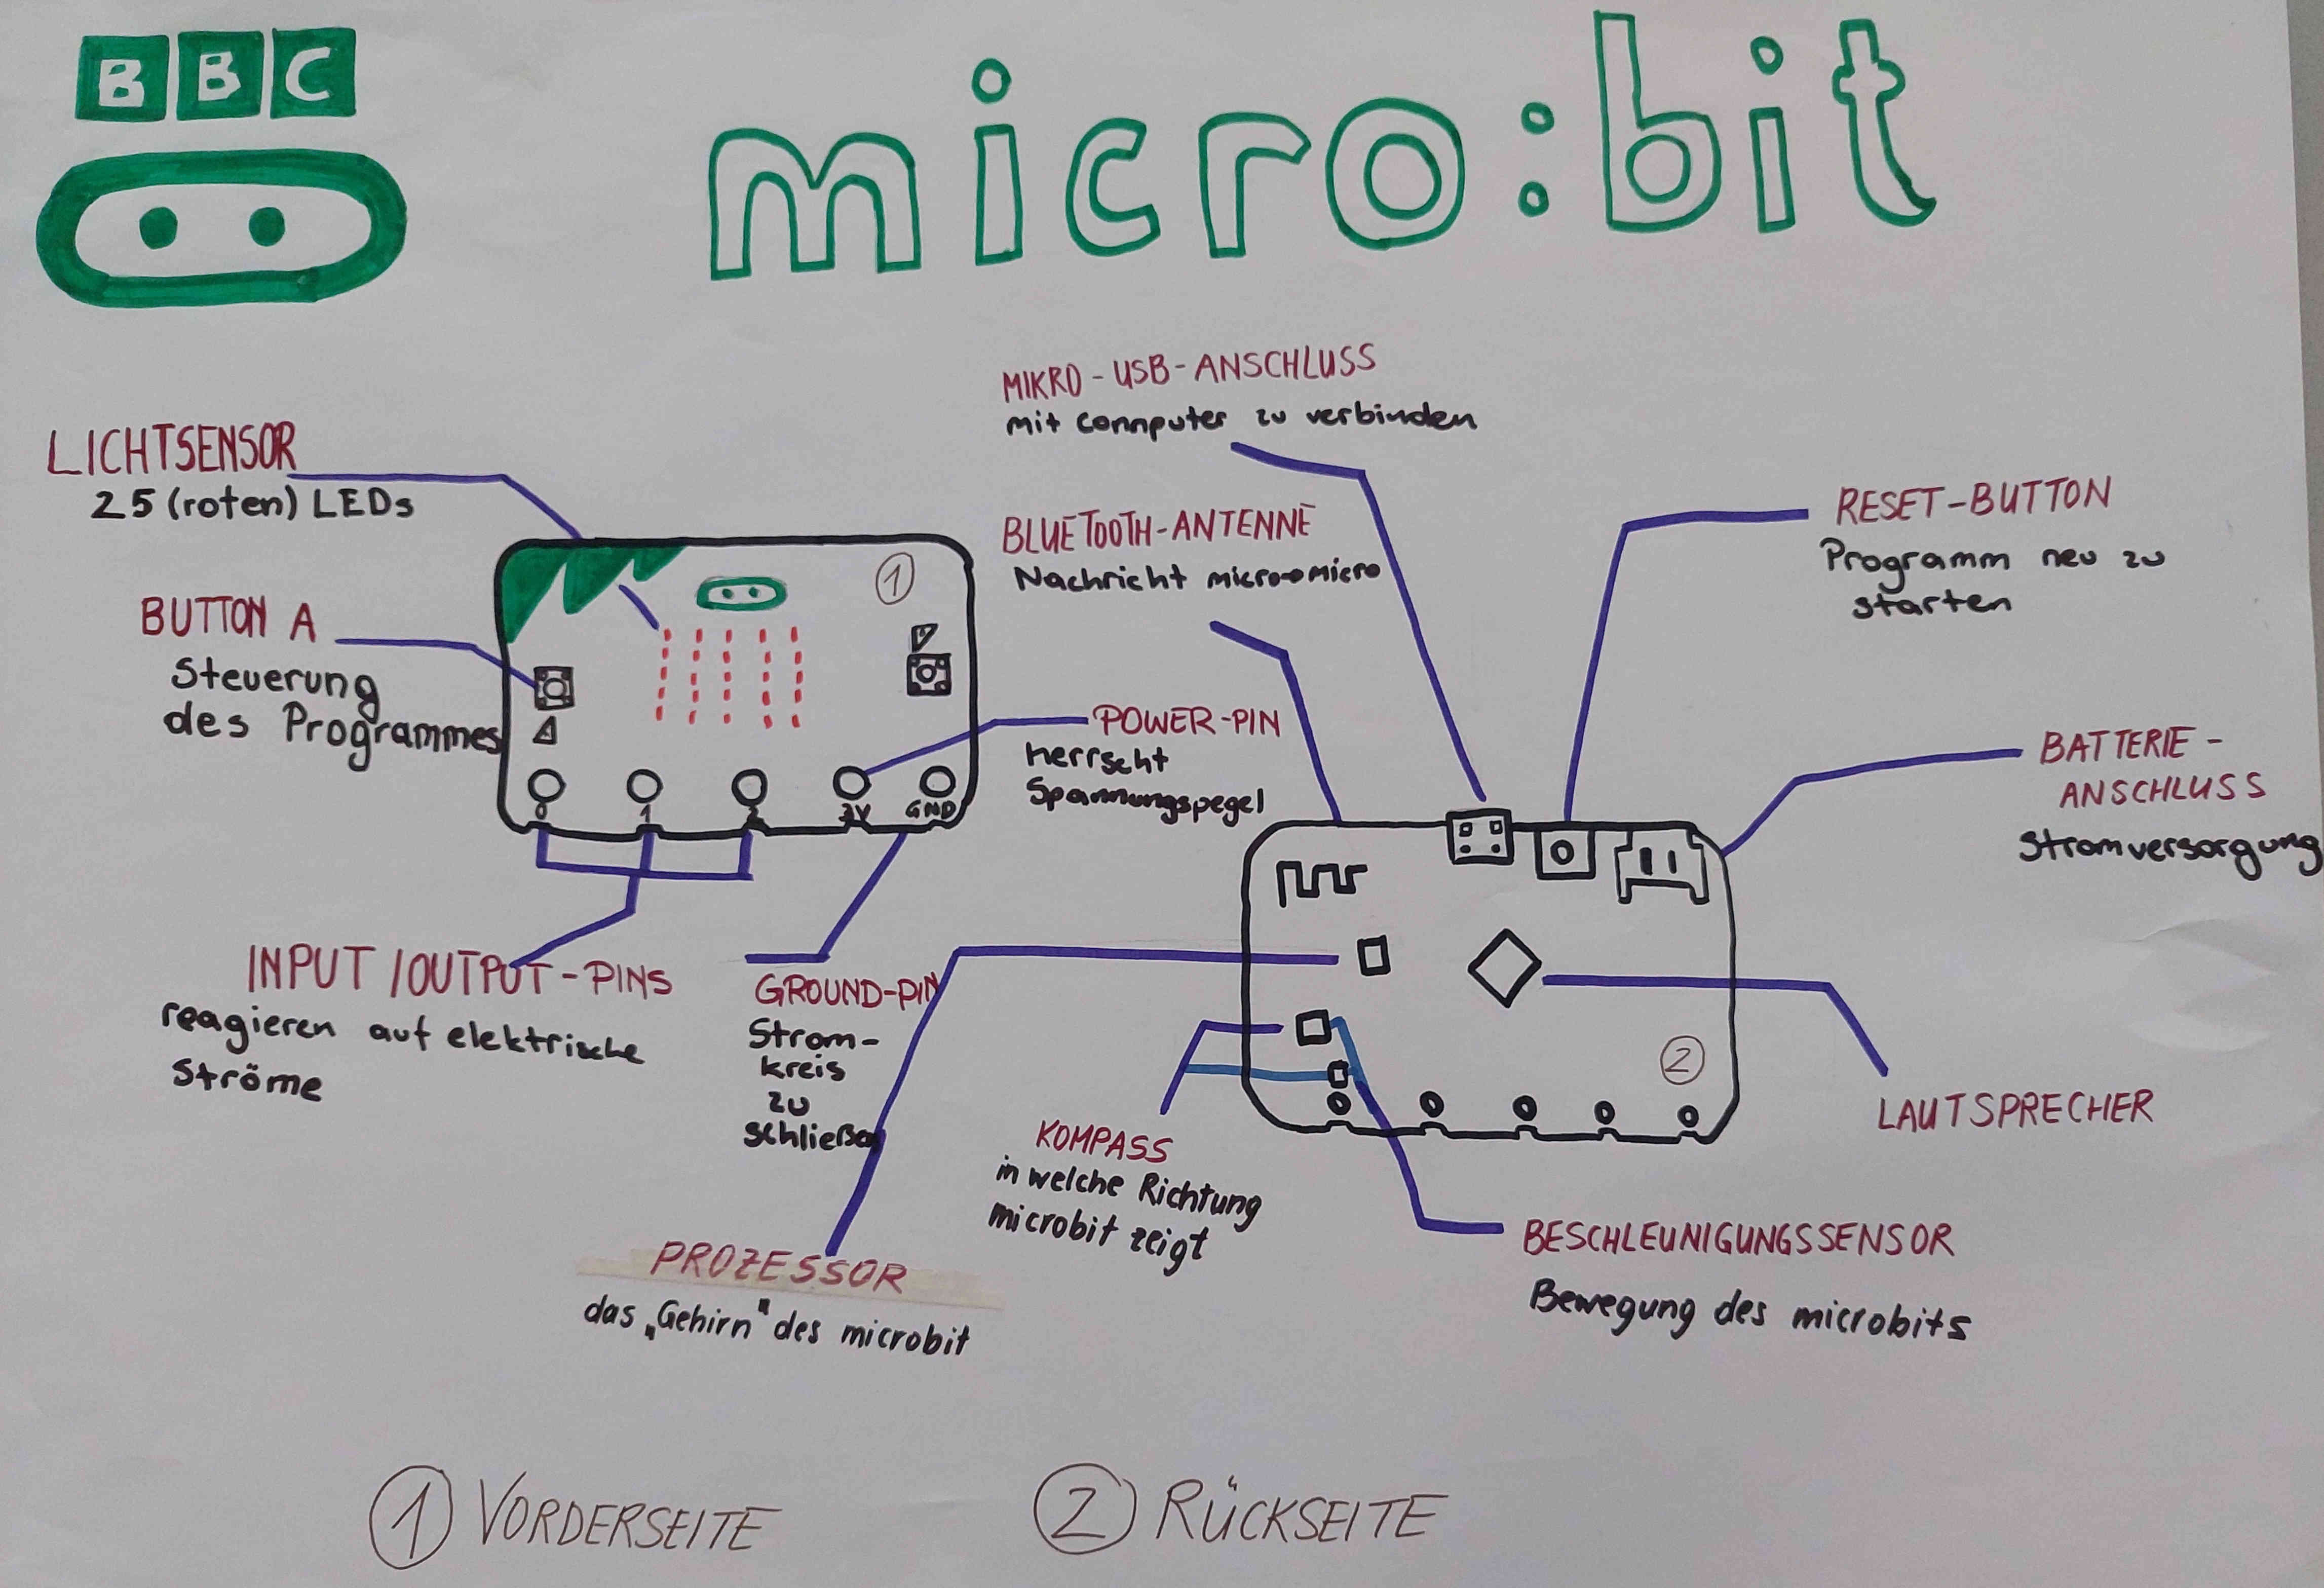 BBC
micro:bit
LICHTSENSOR
25 (roten) LEDs
BUTTON A
Steuerung
des Programmes
1
0
1
2
3V
GND
INPUT/OUTPUT-PINS
reagieren auf elektrische
Ströme
GROUND-PIN
Strom-
kreis
zu
schließen
POWER-PIN
herrscht
Spannungspegel
MIKRO-USB-ANSCHLUSS
mit Computer zu verbinden
BLUETOOTH-ANTENNE
Nachricht micro→micro
RESET-BUTTON
Programm neu zu
starten
BATTERIE-
ANSCHLUSS
Stromversorgung
2
LAUTSPRECHER
KOMPASS
in welche Richtung
microbit zeigt
BESCHLEUNIGUNGSSENSOR
Bewegung des microbits
PROZESSOR
das „Gehirn" des microbit
1 VORDERSEITE
2 RÜCKSEITE